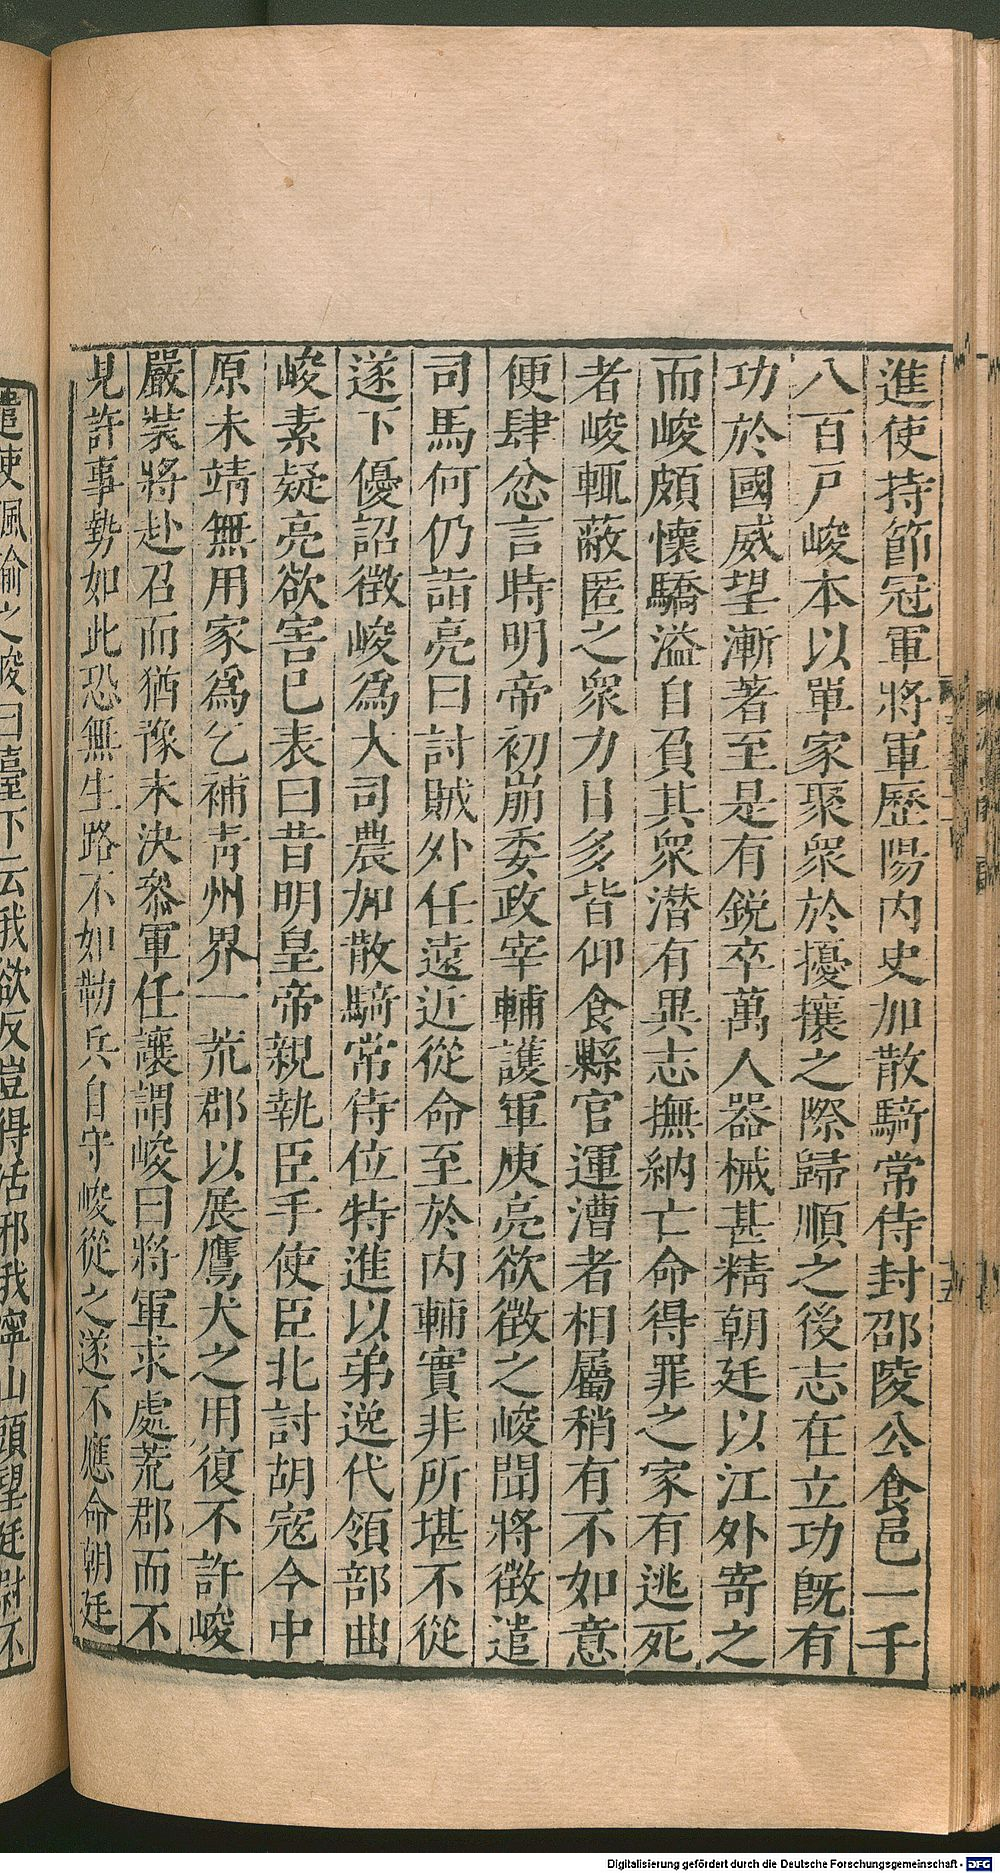 進使持節冠軍將軍歷陽内史加散騎常侍封邵陵公食邑一千
八百戸峻本以單家聚衆於擾攘之際歸順之後志在立功旣有
功於國威望漸著至是有銳卒萬人器械甚精朝廷以江外寄之
而峻頗懷驕溢自負其衆潜有異志撫納亡命得罪之家有逃死
者峻輒蔽匿之衆力日多皆仰食縣官運漕者相屬稍有不如意
便肆忿言時明帝初崩委政宰輔護軍庾亮欲徴之峻聞將徴遣
司馬何仍詣亮曰討賊外任遠近從命至於内輔實非所堪不從
遂下優詔徴峻爲大司農加散騎常侍位特進以弟逸代領部曲
峻素疑亮欲害已表曰昔明皇帝親執臣手使臣北討胡寇今中
原未靖無用家爲乞補靑州界一荒郡以展鷹犬之用復不許峻
嚴裝將赴召而猶豫未決叅軍任讓謂峻曰將軍求處荒郡而不
見許事勢如此恐無生路不如勒兵自守峻從之遂不應命朝廷
遣使諷諭之峻曰臺下云我欲反豈得活邪我寧山頭望廷尉不
Digitalisierung gefördert durch die Deutsche Forschungsgemeinschaft - DFG